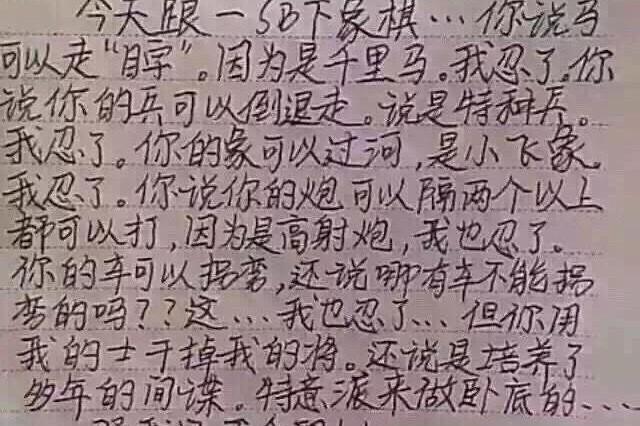 今天跟一SB下象棋…你说马
可以走“目字”。因为是千里马。我忍了。你
说你的兵可以倒退走。说是特种兵。
我忍了。你的象可以过河,是小飞象。
我忍了。你说你的炮可以隔两个以上
都可以打,因为是高射炮,我也忍了。
你的车可以拐弯,还说哪有车不能拐
弯的吗??这…我也忍了…但你用
我的士干掉我的将。还说是培养了
多年的间谍。特意派来做卧底的…